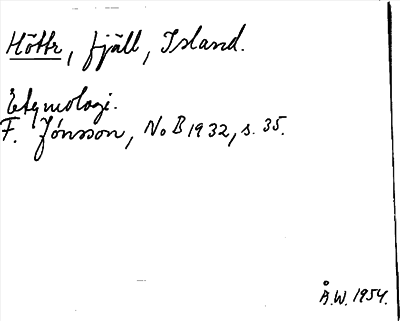 Höttr, fjäll, Island.
Etymologi.
F. Jónsson, NoB 1932, s. 35.
Å.W. 1954.